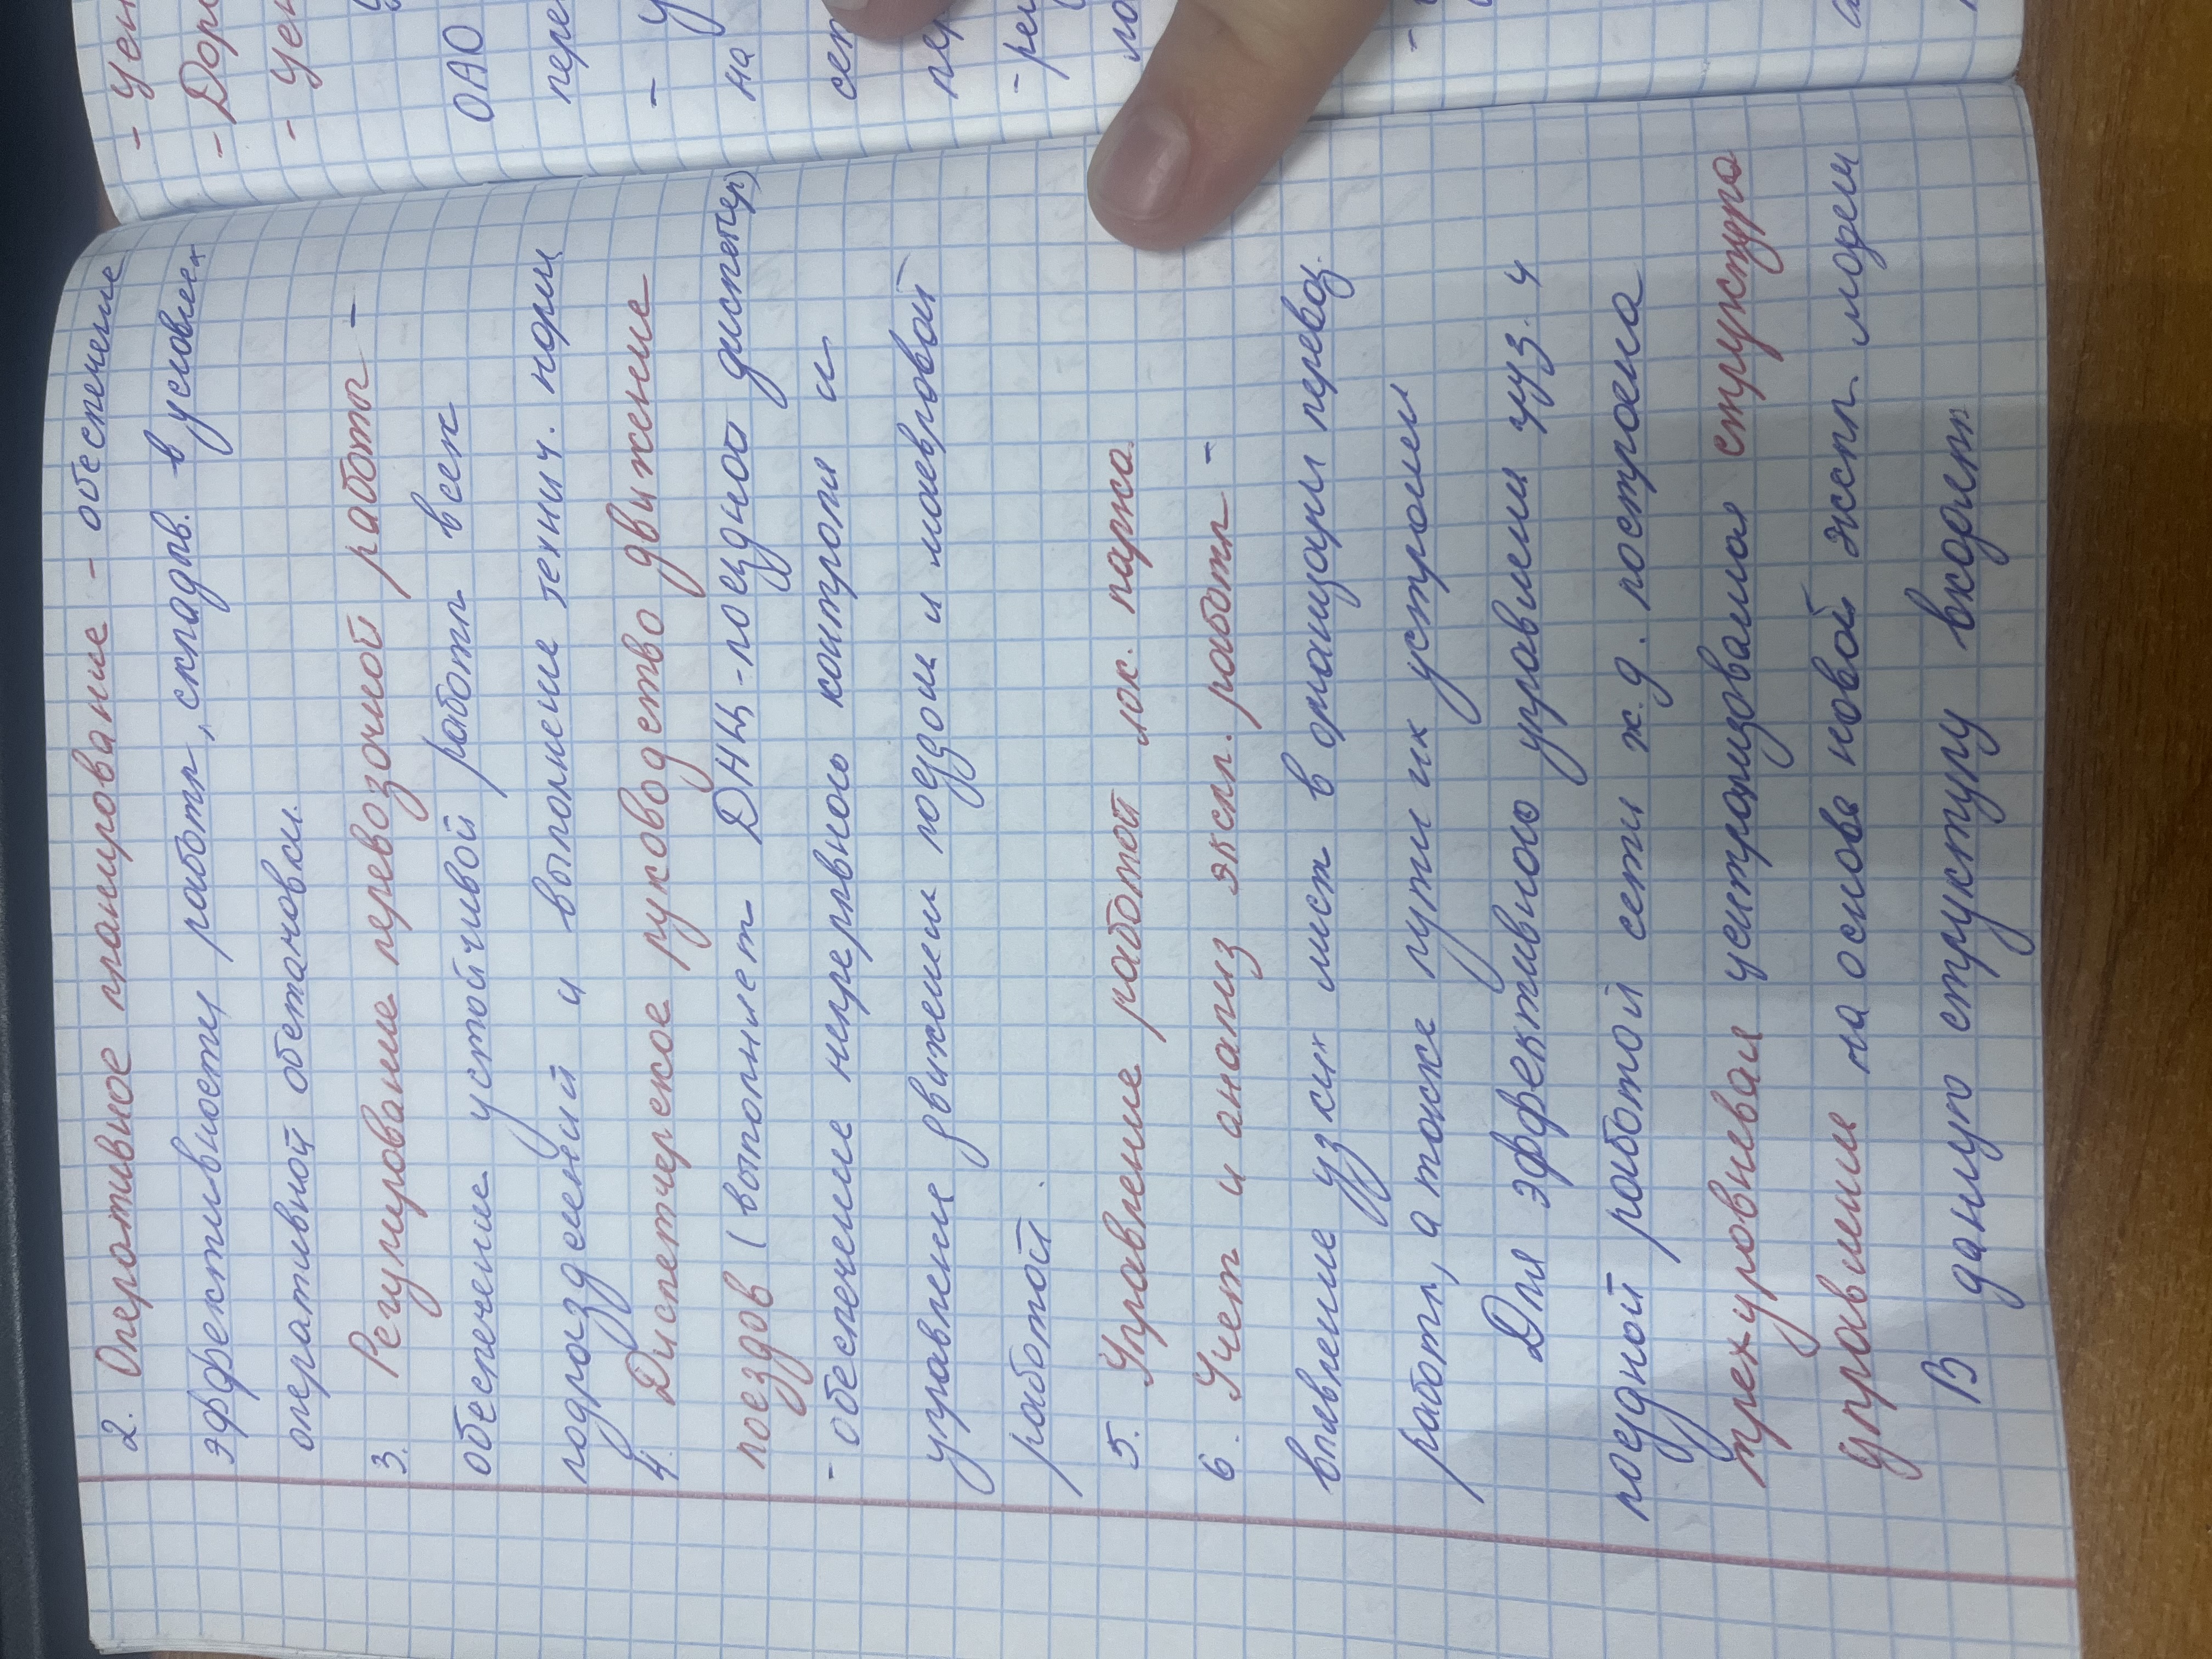 2. Оперативное планирование - обеспечение
эффективности работы, складыв. в условиях
оперативной обстановки.
3. Регулирование перевозочной работы -
обеспечение устойчивой работы всех
подразделений и выполнение технич. норм
4. Диспетчерское руководство движение
поездов (выполняет ДНЦ-поездной диспетчер)
- обеспечение непрерывного контроля и
управление движением поездом и маневровой
работой.
5. Управление работой лок. парка.
6. Учет и анализ экспл. работы -
выявление узких мест в организации перевоз.
работы, а также пути их устроем
Для эффективного управлем груз. и
поездной работой сети ж.д. построена
трехуровневая централизованая структура
управление на основе новой эксп. модели
В даную структуру входят
- Цен
- Дор
- Цен
ОАО
пере
- У
на
сет
пер
- рег
ло